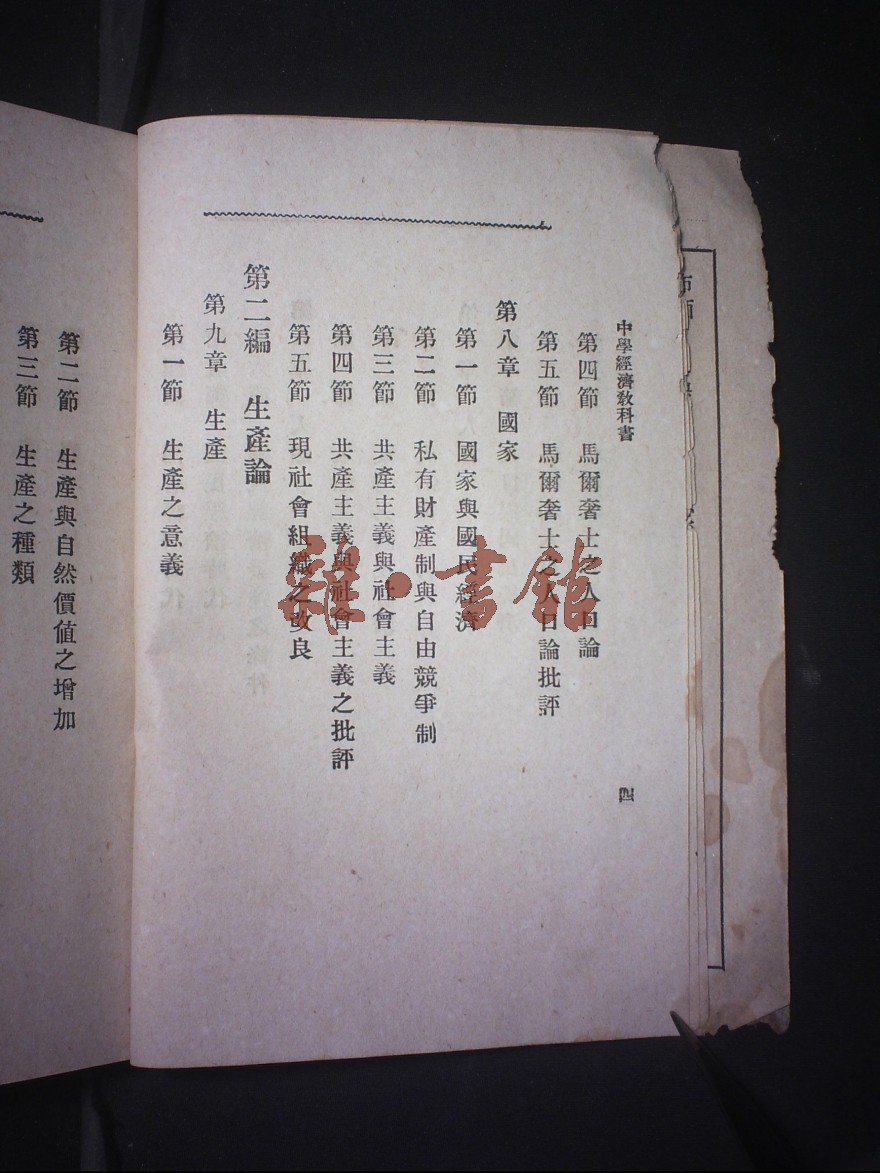 中學經濟敎科書
四
第四節 馬爾奢士之人口論
第五節 馬爾奢士之人口論批評
第八章 國家
第一節 國家與國民經濟
第二節 私有財產制與自由競爭制
第三節 共產主義與社會主義
第四節 共產主義與社會主義之批評
第五節 現社會組織之改良
第二編 生產論
第九章 生產
第一節 生產之意義
第二節 生產與自然價值之增加
第三節 生產之種類
雜·書館